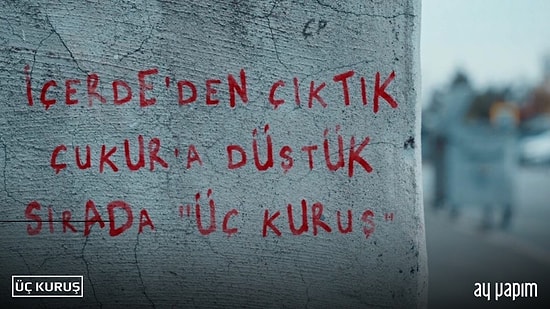 CP
İÇERDE'DEN ÇIKTIK
ÇUKUR'A DÜŞTÜK
SIRADA "ÜÇ KURUŞ"
ÜÇ KURUŞ
ay yapım